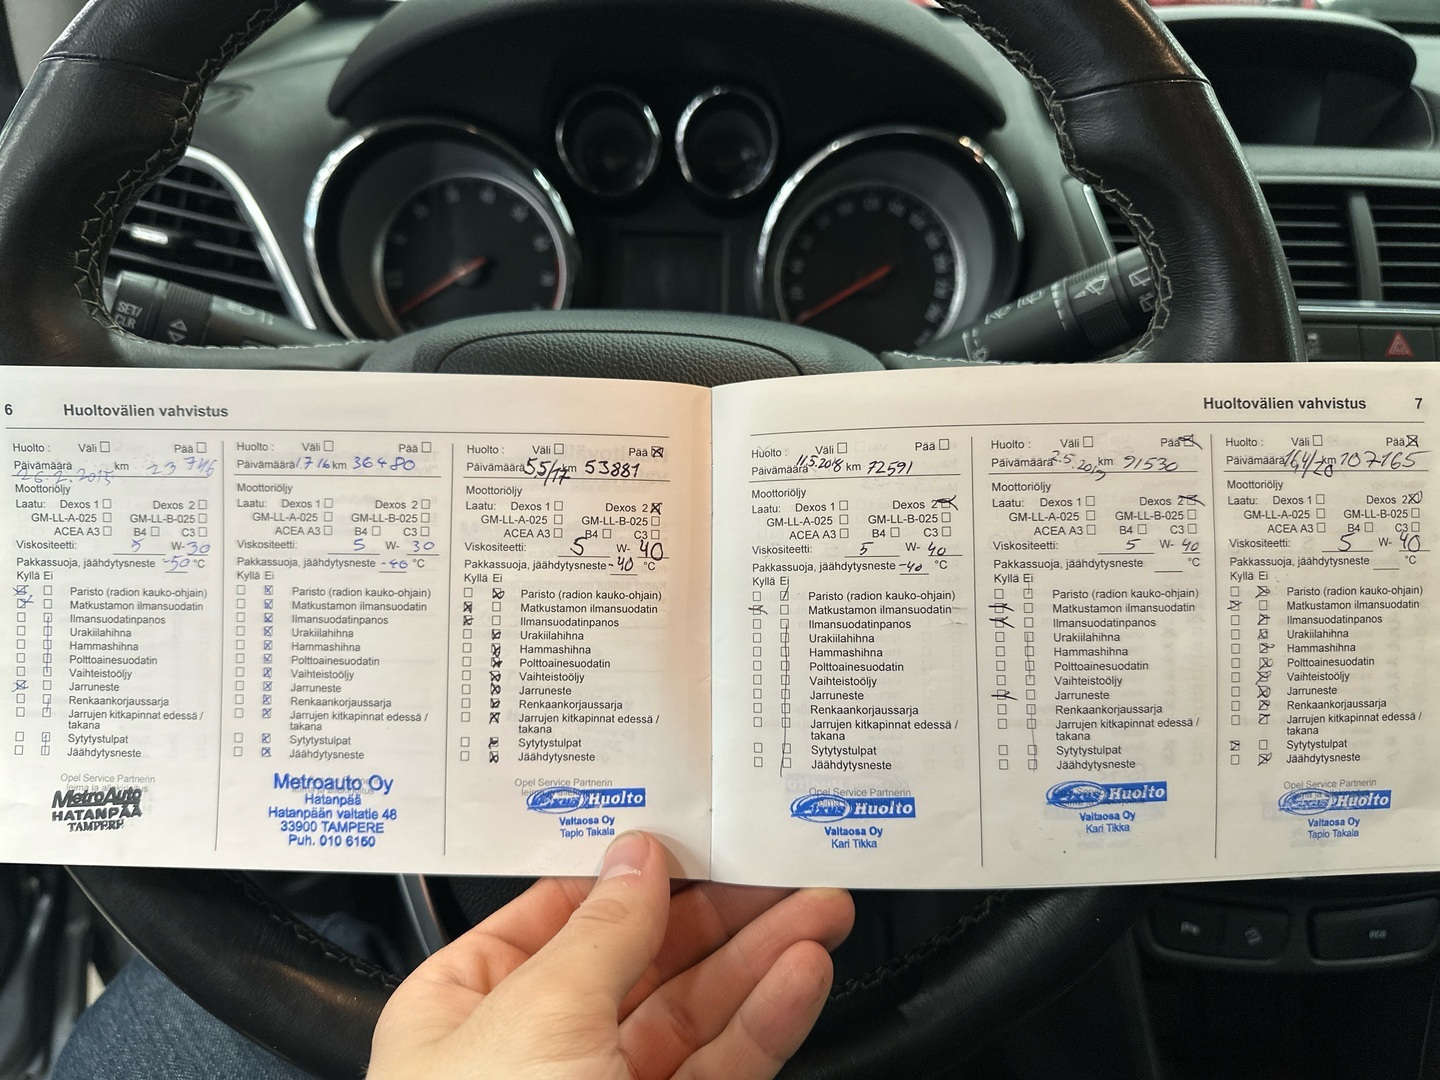 SET/
CLR
6 Huoltovälien vahvistus
Huolto : Väli Pää
Päivämäärä 26.2.2015 km 23 746
Moottoriöljy
Laatu: Dexos 1 Dexos 2
GM-LL-A-025 GM-LL-B-025
ACEA A3 B4 C3
Viskositeetti: 5 W- 30
Pakkassuoja, jäähdytysneste -50 °C
Kyllä Ei
Paristo (radion kauko-ohjain)
Matkustamon ilmansuodatin
Ilmansuodatinpanos
Urakiilahihna
Hammashihna
Polttoainesuodatin
Vaihteistoöljy
Jarruneste
Renkaankorjaussarja
Jarrujen kitkapinnat edessä /
takana
Sytytystulpat
Jäähdytysneste
Opel Service Partnerin
MetroAuto
HATANPÄÄ
TAMPERE
Huolto : Väli Pää
Päivämäärä 1716 km 36480
Moottoriöljy
Laatu: Dexos 1 Dexos 2
GM-LL-A-025 GM-LL-B-025
ACEA A3 B4 C3
Viskositeetti: 5 W- 30
Pakkassuoja, jäähdytysneste -40 °C
Kyllä Ei
Paristo (radion kauko-ohjain)
Matkustamon ilmansuodatin
Ilmansuodatinpanos
Urakiilahihna
Hammashihna
Polttoainesuodatin
Vaihteistoöljy
Jarruneste
Renkaankorjaussarja
Jarrujen kitkapinnat edessä /
takana
Sytytystulpat
Jäähdytysneste
Metroauto Oy
Hatanpää
Hatanpään valtatie 48
33900 TAMPERE
Puh. 010 6150
Huolto : Väli Pää
Päivämäärä 5.5/17 km 53881
Moottoriöljy
Laatu: Dexos 1 Dexos 2
GM-LL-A-025 GM-LL-B-025
ACEA A3 B4 C3
Viskositeetti: 5 W- 40
Pakkassuoja, jäähdytysneste -40 °C
Kyllä Ei
Paristo (radion kauko-ohjain)
Matkustamon ilmansuodatin
Ilmansuodatinpanos
Urakiilahihna
Hammashihna
Polttoainesuodatin
Vaihteistoöljy
Jarruneste
Renkaankorjaussarja
Jarrujen kitkapinnat edessä /
takana
Sytytystulpat
Jäähdytysneste
Opel Service Partnerin
Huolto
Valtaosa Oy
Tapio Takala
Huoltovälien vahvistus 7
Huolto : Väli Pää
Päivämäärä 11.5.2018 km 72591
Moottoriöljy
Laatu: Dexos 1 Dexos 2
GM-LL-A-025 GM-LL-B-025
ACEA A3 B4 C3
Viskositeetti: 5 W- 40
Pakkassuoja, jäähdytysneste -40 °C
Kyllä Ei
Paristo (radion kauko-ohjain)
Matkustamon ilmansuodatin
Ilmansuodatinpanos
Urakiilahihna
Hammashihna
Polttoainesuodatin
Vaihteistoöljy
Jarruneste
Renkaankorjaussarja
Jarrujen kitkapinnat edessä /
takana
Sytytystulpat
Jäähdytysneste
Opel Service Partnerin
Huolto
Valtaosa Oy
Kari Tikka
Huolto : Väli Pää
Päivämäärä 2.5.2019 km 91530
Moottoriöljy
Laatu: Dexos 1 Dexos 2
GM-LL-A-025 GM-LL-B-025
ACEA A3 B4 C3
Viskositeetti: 5 W- 40
Pakkassuoja, jäähdytysneste °C
Kyllä Ei
Paristo (radion kauko-ohjain)
Matkustamon ilmansuodatin
Ilmansuodatinpanos
Urakiilahihna
Hammashihna
Polttoainesuodatin
Vaihteistoöljy
Jarruneste
Renkaankorjaussarja
Jarrujen kitkapinnat edessä /
takana
Sytytystulpat
Jäähdytysneste
Huolto
Valtaosa Oy
Kari Tikka
Huolto : Väli Pää
Päivämäärä 16.4/20 km 107165
Moottoriöljy
Laatu: Dexos 1 Dexos 2
GM-LL-A-025 GM-LL-B-025
ACEA A3 B4 C3
Viskositeetti: 5 W- 40
Pakkassuoja, jäähdytysneste °C
Kyllä Ei
Paristo (radion kauko-ohjain)
Matkustamon ilmansuodatin
Ilmansuodatinpanos
Urakiilahihna
Hammashihna
Polttoainesuodatin
Vaihteistoöljy
Jarruneste
Renkaankorjaussarja
Jarrujen kitkapinnat edessä /
takana
Sytytystulpat
Jäähdytysneste
Opel Service Partnerin
Huolto
Valtaosa Oy
Tapio Takala